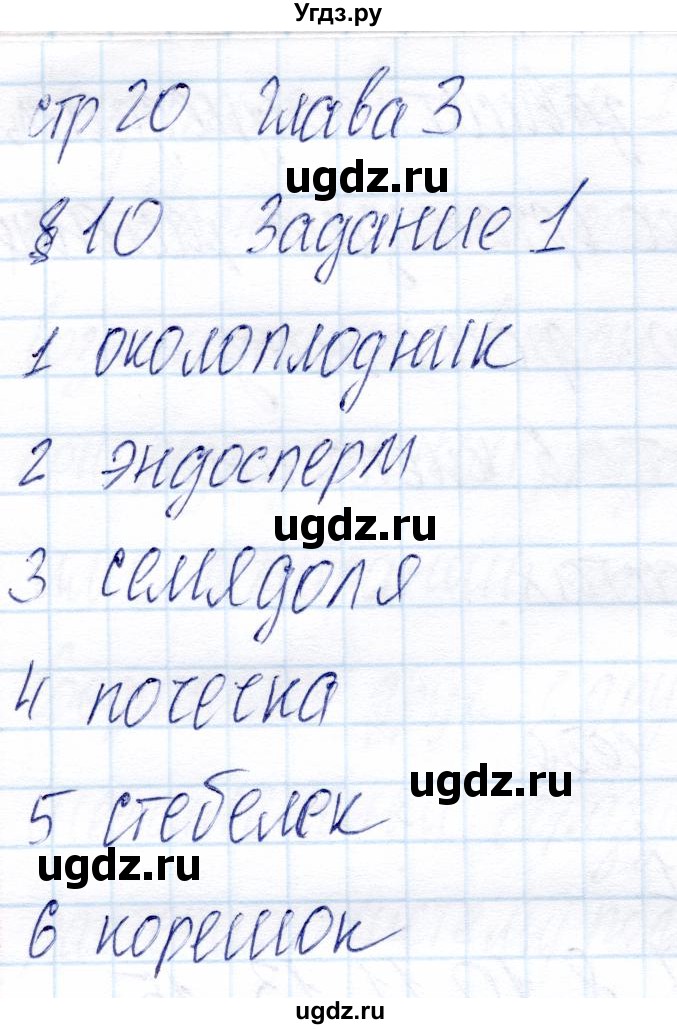 Угдз.ру
стр 20 Глава 3
ugdz.ru
§ 10 Задание 1
1 околоплодник
2 эндосперм
ugdz.ru
3 семядоля
4 почечка
ugdz.ru
5 стебелек
ugdz.ru
6 корешок
ugdz.ru